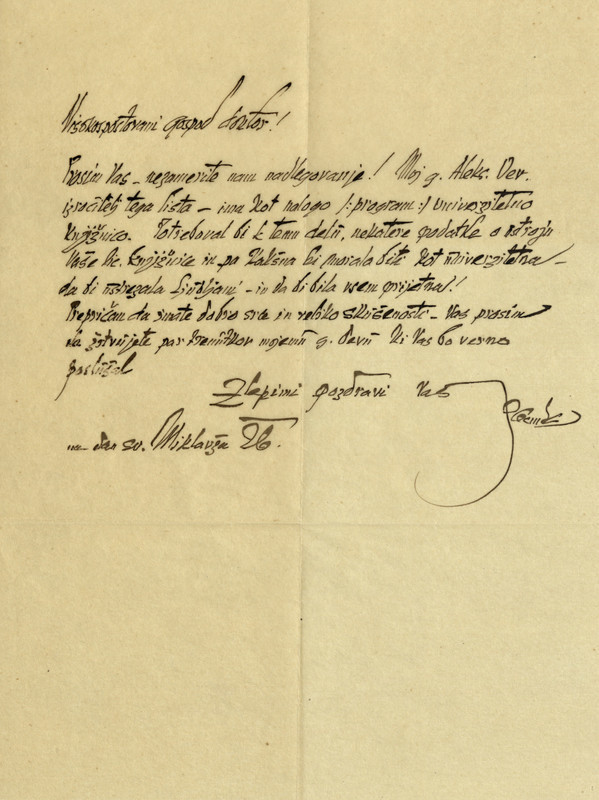 Visokospoštovani gospod doktor!
Prosim Vas – nezamerite nam nadlegovanje! Moj g. Aleks. Dev.
izročitelj tega lista – ima kot nalogo /:program:/ univerzitetno
knjižnico. Potreboval bi k temu delu, nekatere podatke o
Vaše lic. knjižnice in pa kakšna bi morala biti kot univerzitetna –
da bi ustrezala Ljubljani – in da bi bila vsem prijetna!!
Prepričan da imate dobro srce in veliko skušenosti – Vas prosim
da žrtvujete par trenutkov mojemu g. Devu ki Vas bo verno
poslušal
Z lepimi pozdravi Vaš
na dan sv. Miklavža 26.